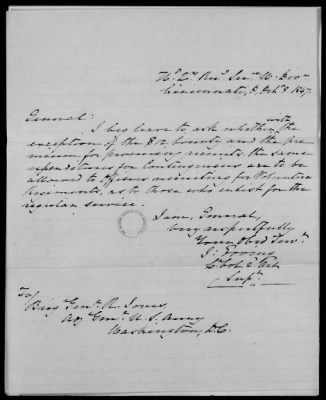 Hd. Qrs. Rec. Serv. W. Divn.
Cincinnati, O, Octr. 8. 1847.
General:
I beg leave to ask whether, with the
exception of the $2 bounty and the pre-
mium for procuring recruits, the same
expenditures for Contingencies are to be
allowed to Officers recruiting for Volunteer
Regiments, as to those who enlist for the
regular service.
I am, General,
Very respectfully
Your Obed. Servt.
J. Erving
Lt Col 2d Art.
Supt.
To/
Brig. Genl. R. Jones,
Adj. Genl. U. S. Army
Washington, D.C.